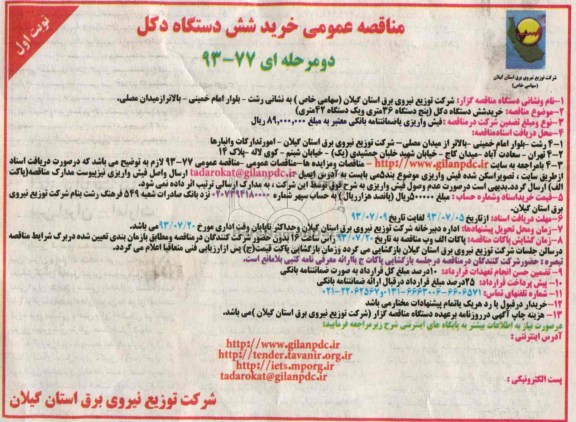 نوبت اول
مناقصه عمومی خرید شش دستگاه دکل
دو مرحله ای ۷۷-۹۳
شرکت توزیع نیروی برق استان گیلان
(سهامی خاص)
۱-نام ونشانی دستگاه مناقصه گزار: شرکت توزیع نیروی برق استان گیلان (سهامی خاص ) به نشانی رشت - بلوار امام خمینی - بالاترازمیدان مصلی.
۲-موضوع مناقصه: خریدشش دستگاه دکل (پنج دستگاه ۳۶متری ویک دستگاه ۴۲متری)
۳-نوع ومبلغ تضمین شرکت در مناقصه: فیش واریزی یاضمانتنامه بانکی معتبر به مبلغ ۸۹,۰۰۰,۰۰۰ریال
۴-محل دریافت اسنادمناقصه:
۴-۱ رشت -بلوار امام خمینی -بالاتر از میدان مصلی- شرکت توزیع نیروی برق استان گیلان - امورتدارکات وانبارها
۴-۲ تهران - سعادت آباد -میدان کاج - خیابان شهید علیان جمشیدی (یک) - خیابان شبنم - کوی لاله -پلاک ۱۴
۴-۳ بامراجعه به سایت http://www.gilanpdc.ir - مناقصات ومزایده ها-مناقصات عمومی -مناقصه عمومی ۷۷-۹۳ لازم به توضیح می باشد که درصورت دریافت اسناد
ازطریق سایت ، تصویراسکن شده فیش واریزی موضوع بند۵می بایست به آدرس ایمیل tadarokat@gilanpdc.ir ارسال واصل فیش واریزی نیزپیوست مدارک مناقصه(پاکت
الف) ارسال گردد.بدیهی است درصورت عدم وصول فیش واریزی به شرح فوق توسط این شرکت ، به مدارک ارسالی ترتیب اثر داده نمی شود.
۵- قیمت خریداسناد وشماره حساب: مبلغ۵۰۰۰۰۰ریال (پانصد هزارریال) به حساب سپهر شماره ۰۲۰۷۳۹۴۱۸۰۰۰۰ نزد بانک صادرات شعبه ۵۴۹ فرهنگ رشت بنام شرکت توزیع نیروی
برق استان گیلان.
۶- مهلت دریافت اسناد: ازتاریخ ۹۳/۰۷/۰۵ لغایت تاریخ ۹۳/۰۷/۰۹
۷- زمان ومحل تحویل پیشنهادها: اداره دبیرخانه شرکت توزیع نیروی برق استان گیلان وحداکثر تاپایان وقت اداری مورخ ۹۳/۰۷/۲۰ می باشد.
۸- زمان گشایش پاکات مناقصه: پاکات الف وب مناقصه به تاریخ ۹۳/۰۷/۲۱ رأس ساعت ۱۶ بدون حضور شرکت کنندگان درمناقصه ومطابق بازمان بندی تعیین شده دربرگ شرایط مناقصه
درسالن جلسات شرکت توزیع نیروی برق استان گیلان بازگشائی می گردد زمان بازگشایی پاکت قیمت(ج) پس ازارزیابی فنی متعاقبا اعلام می گردد.
تبصره : حضورشرکت کنندگان در مناقصه درجلسه بازگشایی پاکات ج باارائه معرفی نامه کتبی بلامانع است.
۹- تضمین حسن انجام تعهدات قرارداد: ۱۰درصد مبلغ کل قرارداد به صورت ضمانتنامه بانکی
۱۰- پیش پرداخت قرارداد: ۲۵درصد مبلغ قرارداد درقبال ارائه ضمانتنامه بانکی
۱۲- خریدار درقبول یا رد هریک یاتمام پیشنهادات مختارمی باشد
۱۳- هزینه چاپ آگهی درروزنامه برعهده دستگاه مناقصه گزار (شرکت توزیع نیروی برق استان گیلان )می باشد.
درصورت نیاز به اطلاعات بیشتر به پایگاه های اینترنتی شرح زیرمراجعه فرمایید:
آدرس اینترنتی :
http://www.gilanpdc.ir
http://tender.tavanir.org.ir
http://iets.mporg.ir
پست الکترونیکی :
tadarokat@gilanpdc.ir
شرکت توزیع نیروی برق استان گیلان